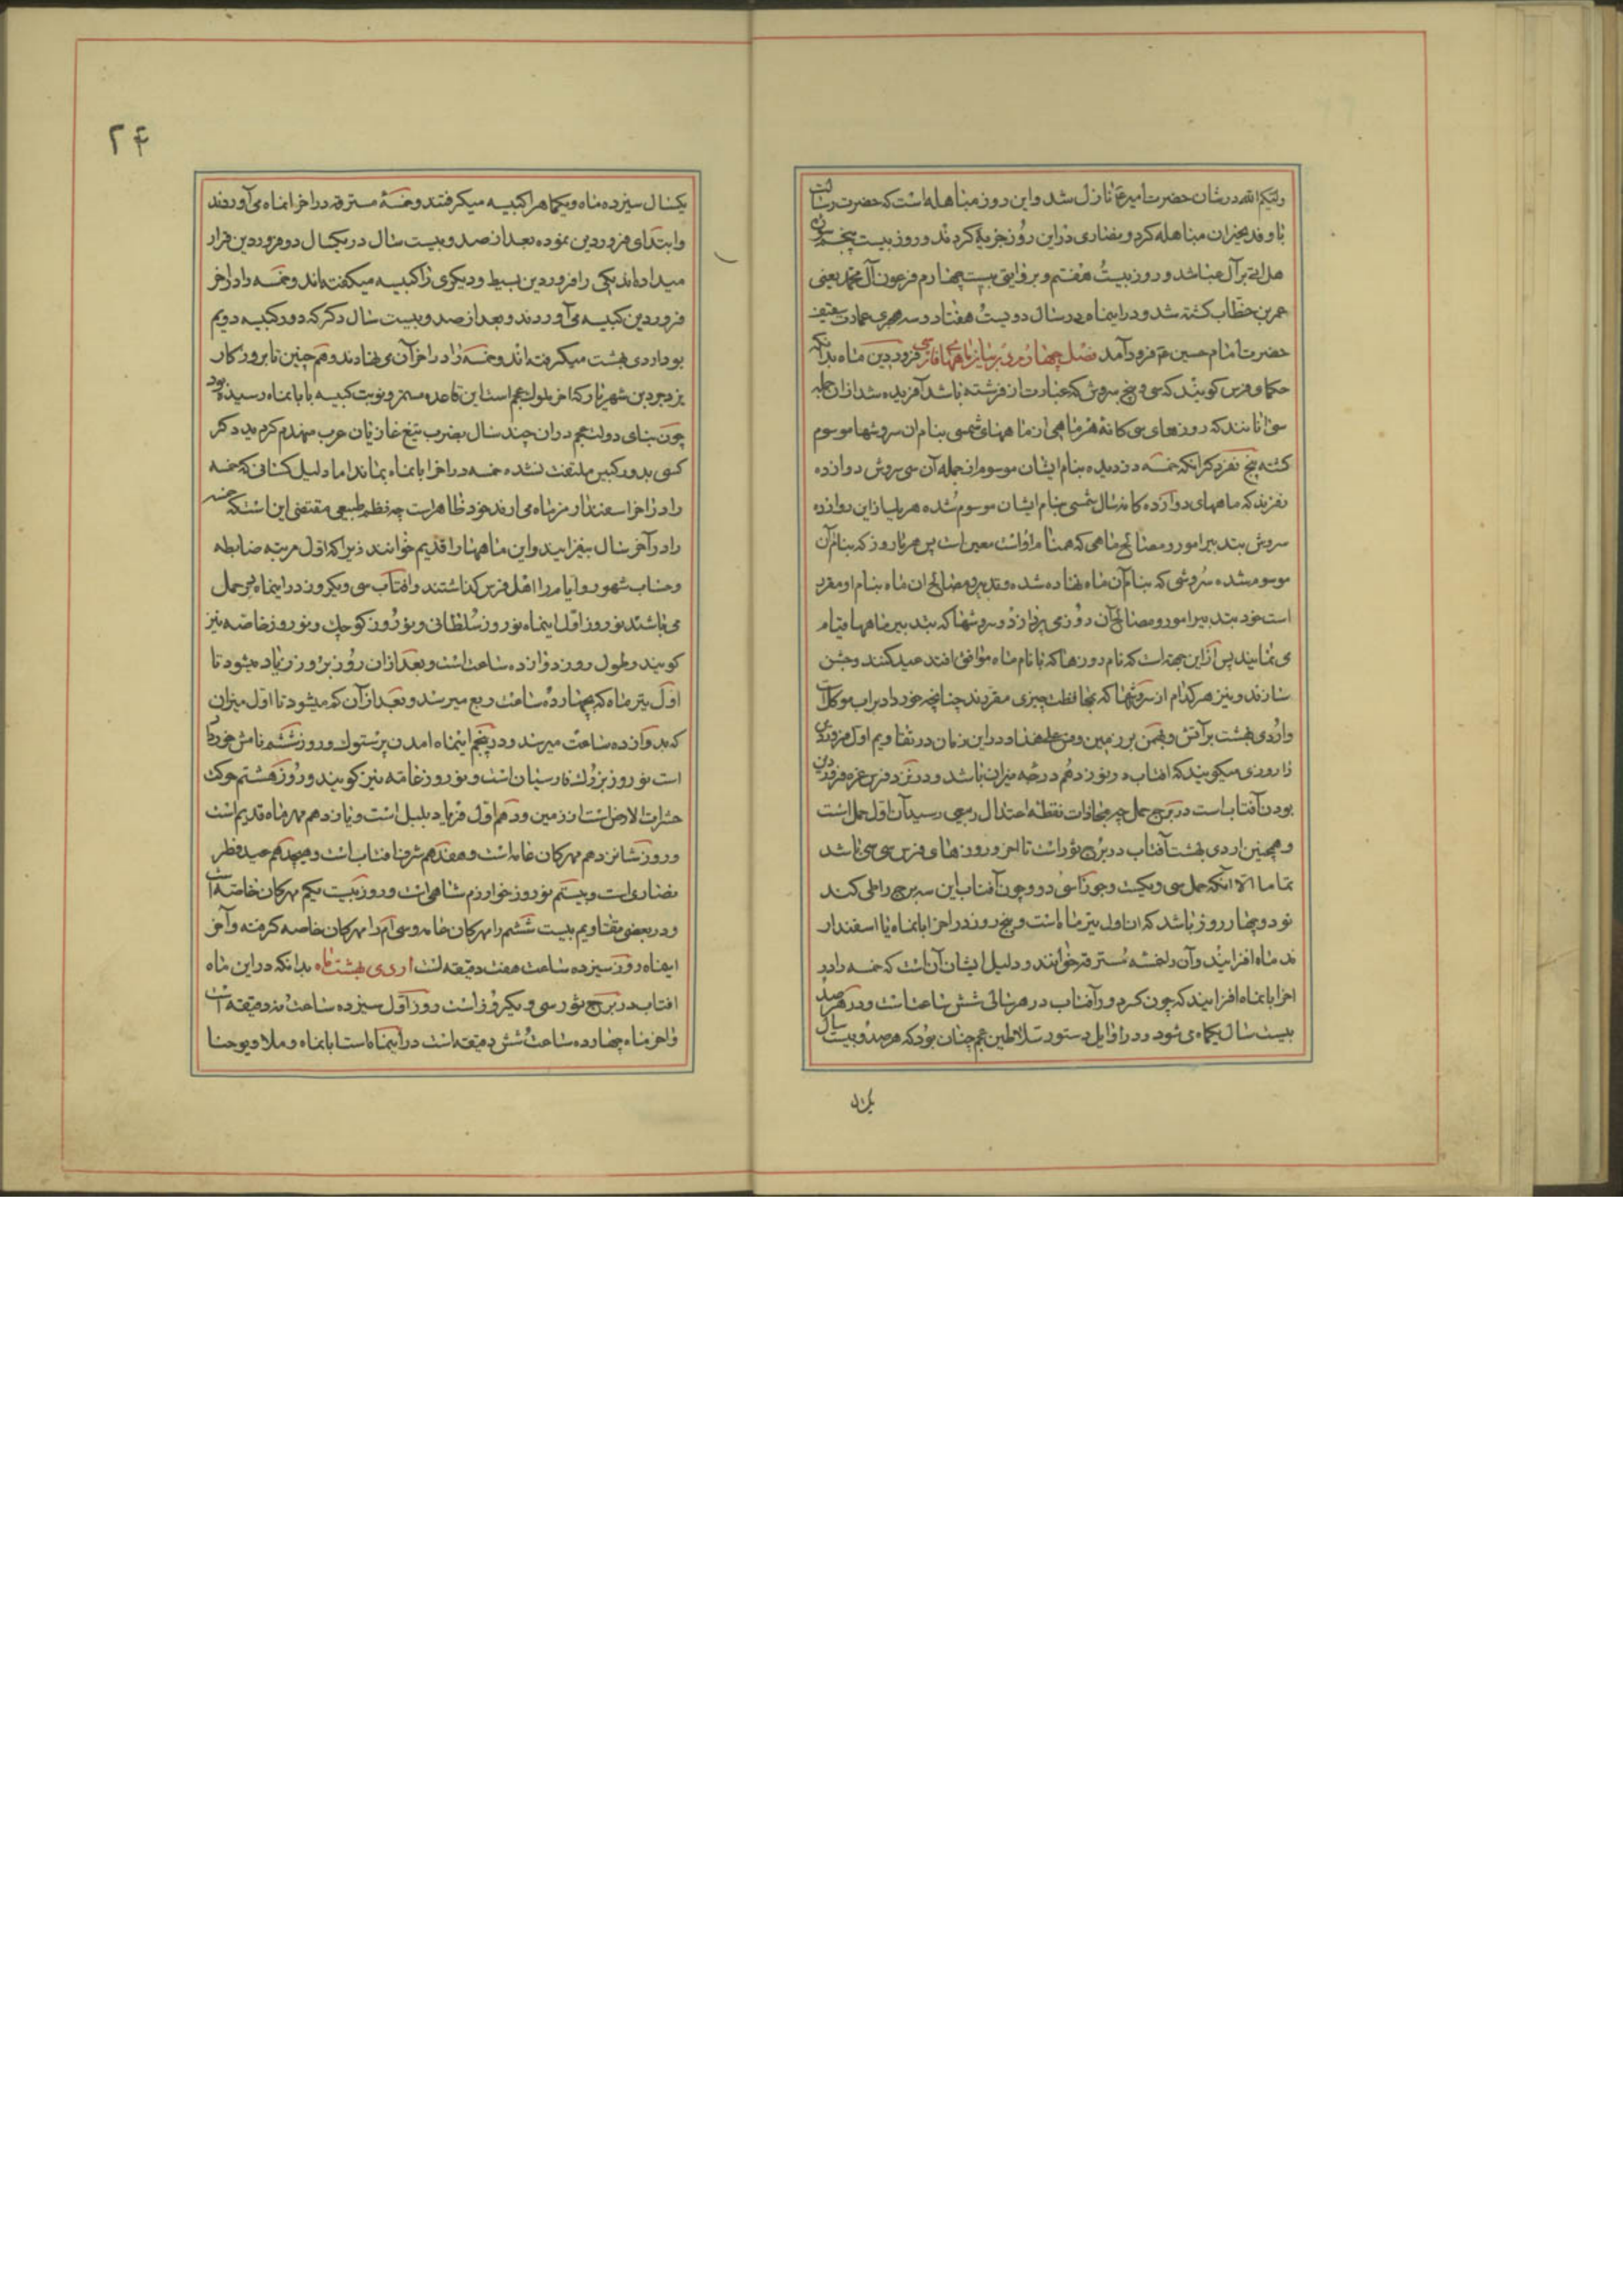 ولیکم الله در شان حضرت امیر ع نازل شد و این روز مباهله است که حضرت رسالت
با وفد نجران مباهله کرد و نصاری در این روز جزیه کردند و روز بیست پنجم سوره
هل اتی بر آل عبا شد و روز بیست هفتم و بروایتی بیست چهارم فرعون آل محمد یعنی
عمر بن خطاب کشته شد و در اینماه در سال دویست هفتاد و سه هجری عمارت سقیفه
حضرت امام حسین ع فرود آمد فصل چهارم در بیان ماههای فارسی فروردین ماه بدانکه
حکما و فرس کویند که سی و پنج سروش که عبارت از فرشته باشد آفریده شد از ان جمله
سی انانند که روزهای سی کانهٔ هر ماهی از ماههای شمسی بنام ان سروشها موسوم
کشته پنج نفر دکر انکه خمسه دزدیده بنام ایشان موسوم از جمله آن سی سروش دوازده
نفرند که ماههای دوازده کانه سال شمسی بنام ایشان موسوم شده هر یک از این دوازده
سروش بتدبیر امور و مصالح ماهی که همنام اوست معین است پس هر بار روز که بنام آن
موسوم شده سروشی که بنام آن ماه نهاده شده و تدبیر و مصالح ان ماه بنام او مقرر
است خود بتدبیر امور و مصالح آن روز می پردازد و سروشها که بتدبیر ماهها قیام
می نمایند پس از این جهة است که نام روزها که با نام ماه موافق افتد عید کنند و جشن
سازند و نیز هر کدام از سروشها که بمحافظت چیزی مقررند چنانچه خرداد بر اب موکل است
و اردی بهشت بر آتش و بهمن بر زمین و من علی هذا و در این زمان در تقاویم اول فروردین
را روزی میکویند که افتاب در نوزدهم درجه میزان باشد و در نزد فرس غره فروردین
بودن آفتاب است در برج حمل چه بمحاذات نقطه اعتدال ربیعی رسید آن اول حمل است
و همچنین اردی بهشت آفتاب در برج ثور است تا اخر و روزها و فرس سی سی باشد
تماما الا آنکه حمل سی و یکست و جوزا سی و دو و چون آفتاب این سه برج را طی کند
نود و چهار روز باشد که ان اول تیر ماه است و پنج روز در اخر ابانماه یا اسفندار
مذ ماه افزایند و آن را خمسه مسترقه خوانند و دلیل ایشان آن است که خمسه را در
اخر ابانماه افزایند که چون کرد ور آفتاب در هر سالی شش ساعتست و در هر صد
بیست سال یکماه می شود و در اوایل دستور سلاطین عجم چنان بود که هر صد و بیست سال
یک
۲۴
یکسال سیزده ماه و یکماهرا کبیسه میکرفتند و خمسهٔ مسترقه در اخر انماه می آوردند
و ابتدای فروردین نموده بعد از صد و بیست سال در یکسال دو فروردین قرار
میداده اند یکی را فروردین بسیط و دیکری را کبیسه میکفته اند و خمسه را در اخر
فروردین کبیسه می آوردند و بعد از صد و بیست سال دکر که دور کبیسه دویم
بود اردی بهشت میکرفته اند و خمسه را در اخر آن می نهادند و هم چنین تا بروزکار
یزدجرد بن شهریار که اخر ملوک عجم است این قاعده مستمر و نوبت کبیسه با بانماه رسیده بود
چون بنای دولت عجم در ان چند سال بضرب تیغ غازیان عرب منهدم کردید دکر
کسی بدور کبیس ملتفت نشده خمسه در اخر ابانماه بماند اما دلیل کسانی که خمسه
را در اخر اسفندارمز ماه می ارند خود ظاهر است چه نظم طبیعی مقتضی این است که خمسه
را در آخر سال بیفزایند و این ماهها را قدیم خوانند زیرا که اول مرتبه ضابطه
و حساب شهور و ایام را اهل فرس کذاشتند و افتاب سی و یکروز در اینماه ببرج حمل
می باشند نوروز اول اینماه نوروز سلطانی و نوروز کوچک و نوروز خاصه نیز
کویند و طول روز دوازده ساعت است و بعد از ان روز بروز زیاد میشود تا
اول تیر ماه که بچهارده ساعت و ربع میرسد و بعد از آن کم میشود تا اول میزان
که بدوازده ساعت میرسد و در پنجم اینماه امدن پرستوک و روز ششم نامش خورداد
است نوروز بزرک فارسیان است و نوروز عامه نیز کویند و روز هشتم حرکت
حشرات الارض است از زمین و دهم اول فریاد بلبل است و یازدهم مهر ماه قدیم است
و روز شانزدهم مهرکان عامه است و هفدهم شرف افتاب است و هیجدهم عید فطر
نصاری است و بیستم نوروز خوارزم شاهی است و روز بیست یکم مهرکان خاصه است
و در بعضی تقاویم بیست ششم را مهرکان عامه و سی ام را مهرکان خاصه کرفته و آخر
اینماه روز سیزده ساعت هفت دقیقه است اردی بهشت ماه بدانکه در این ماه
افتاب در برج ثور سی و یکروز است روز اول سیزده ساعت نه دقیقه است
و اخر ماه چهارده ساعت شش دقیقه است در اینماه است ابانماه و میلاد یوحنا